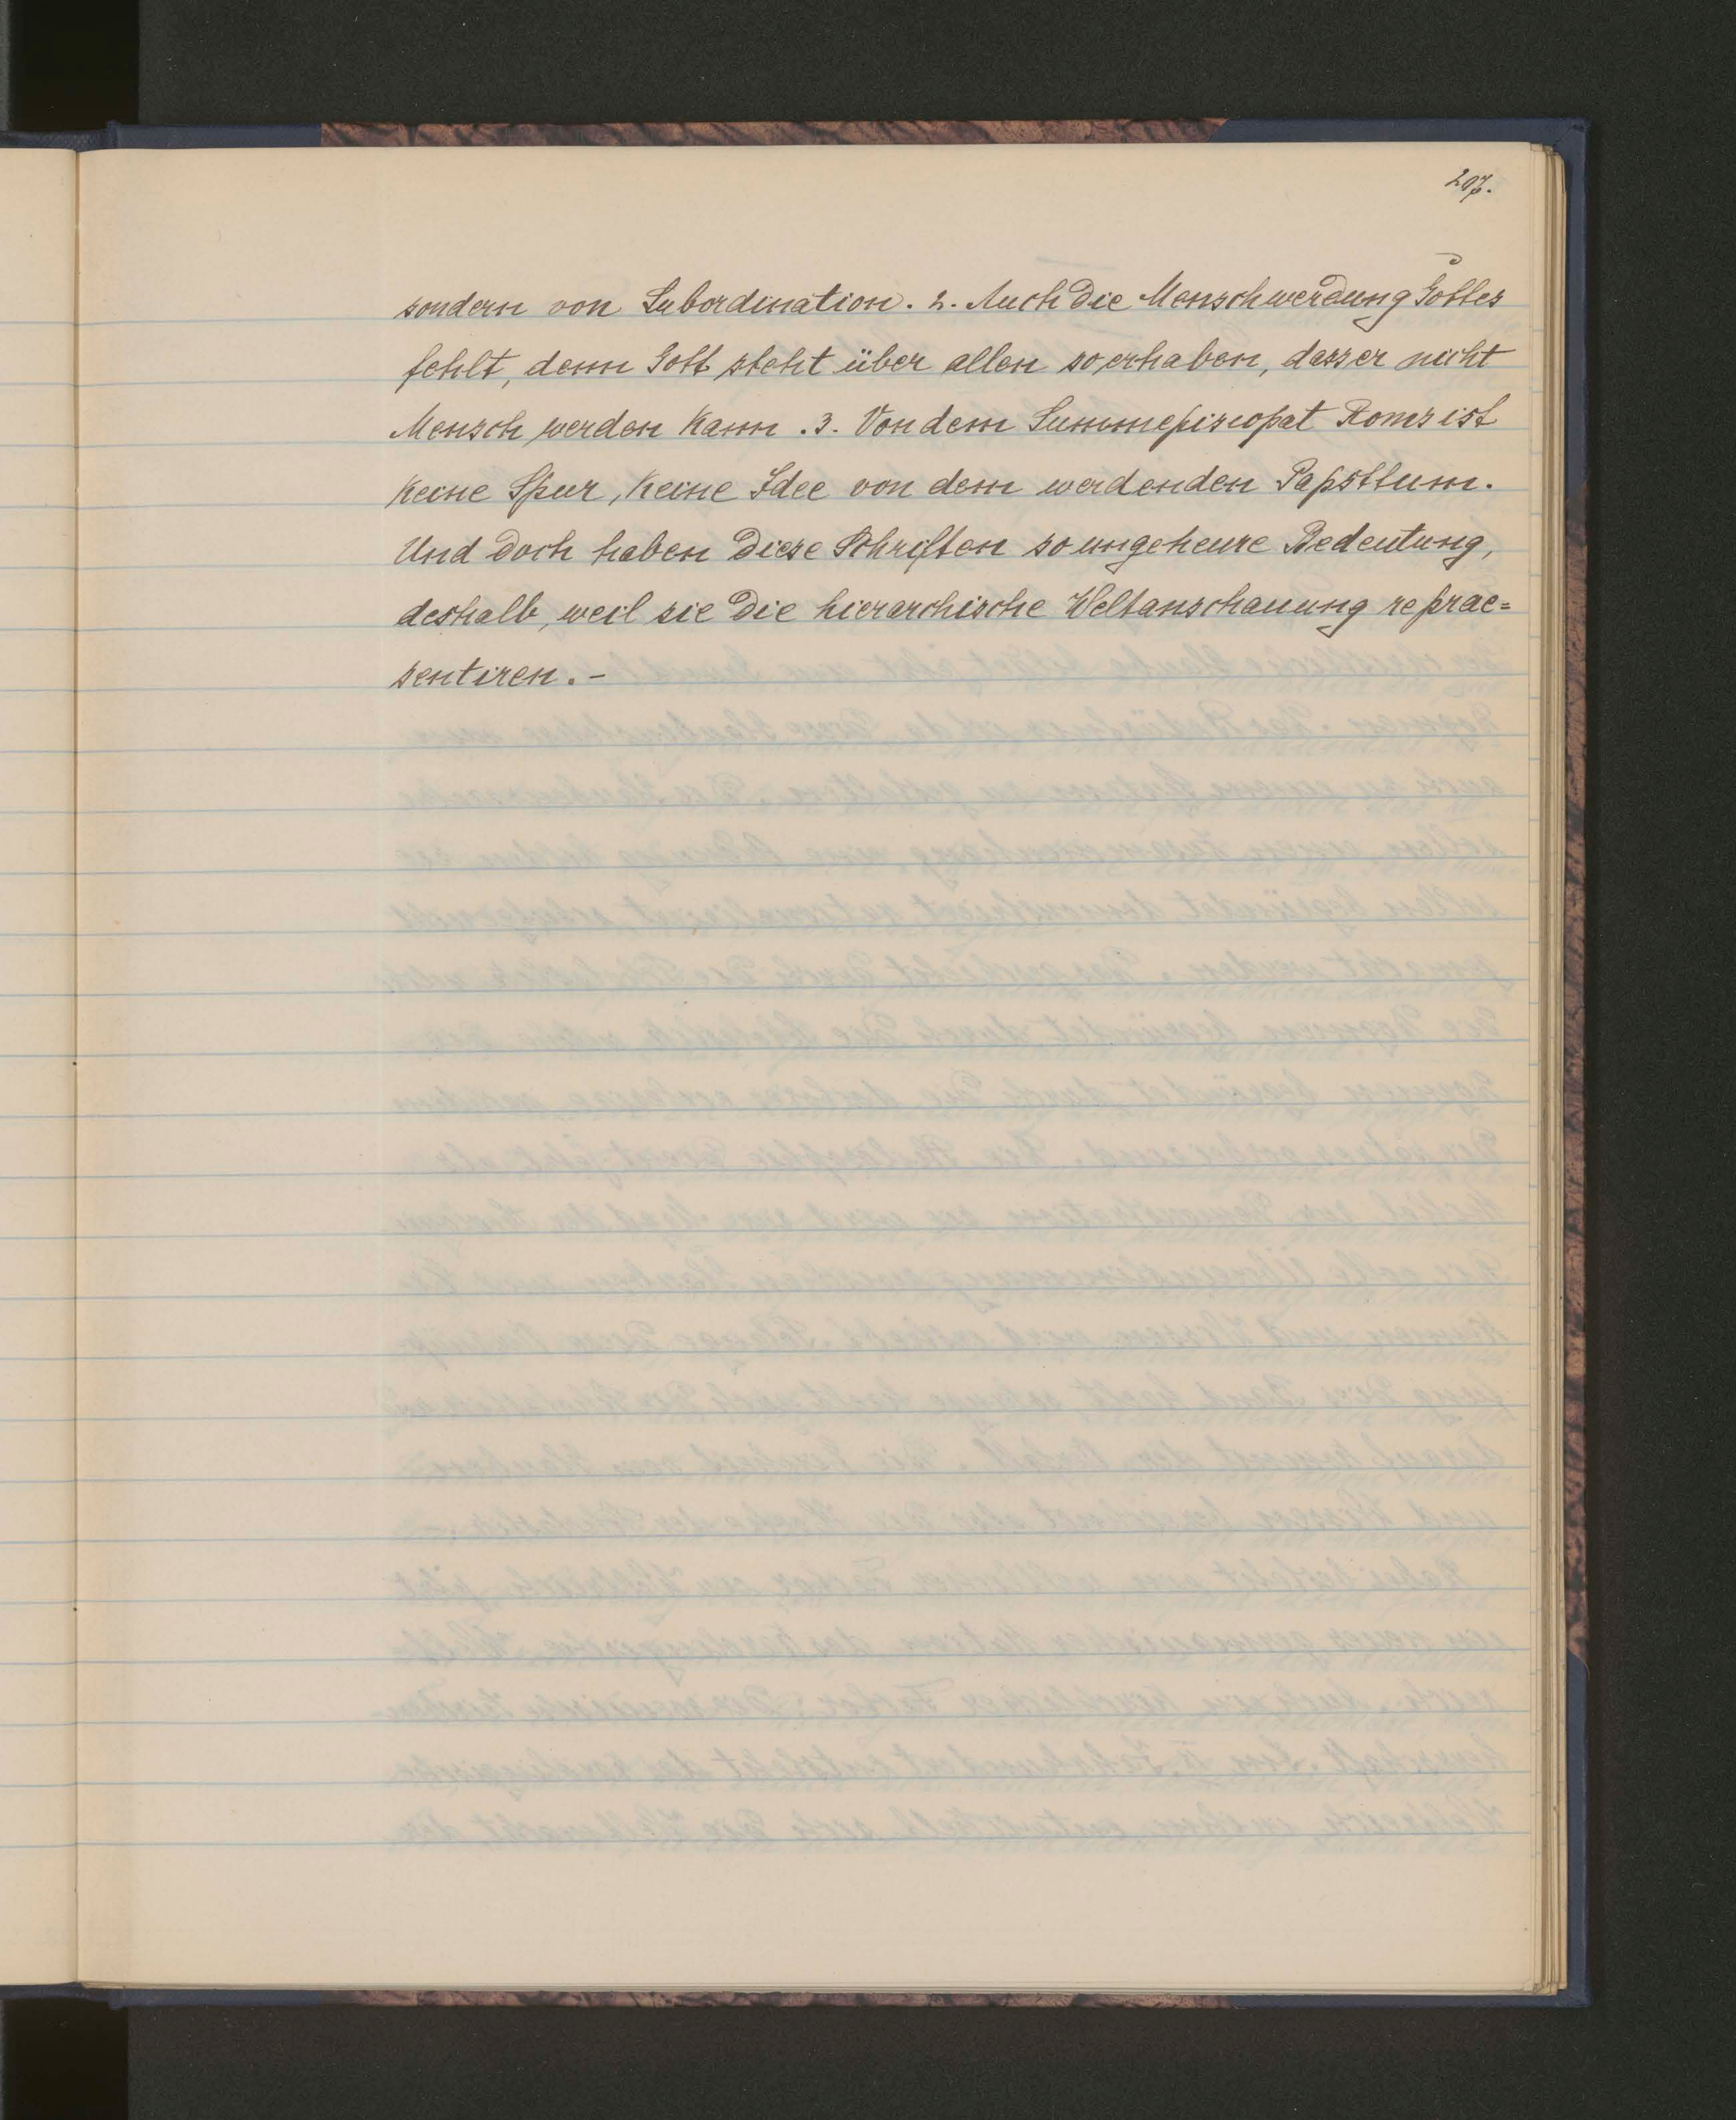 207.
sondern von Subordination. 2. Auch die Menschwerdung Gottes
fehlt, denn Gott steht über allen so erhaben, dass er nicht
Mensch werden kann. 3. Von dem Summepiscopat Roms ist
keine Spur, keine Idee von dem werdenden Papsttum.
Und doch haben diese Schriften so ungeheure Bedeutung,
deshalb, weil sie die hierarchische Weltanschauung reprae=
sentiren. -